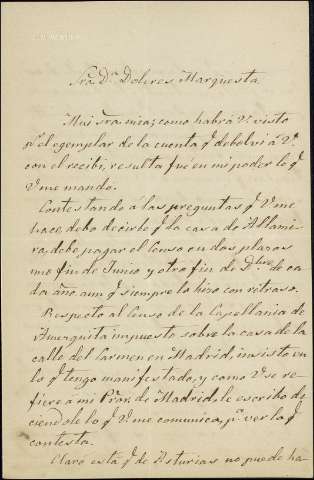 Sra. Dª. Dolores Marquesta
Mui sra. mia; como habrá V. visto
pr. el egemplar de la cuenta q. debolví á V.
con el recibí, resulta fué en mi poder lo q.
V. me mandó.
Contestando a las preguntas q. V. me
hace, debo decirle q. la casa de Altami-
ra, debe pagar el Censo en dos plazos
uno fin de Junio y otro fin de Dbre. de ca-
da año aunq. siempre lo hizo con retraso.
Respecto al Censo de la Capellania de
Amezquita impuesto sobre la casa de la
calle del Carmen en Madrid, insisto en
lo q. tengo manifestado, y como V. se re-
fiere á mi Pror. de Madrid, le escribo di-
ciendole lo q. V. me comunica, pa. ver lo q.
contesta.
Claro está q. de Asturias no puede ha-